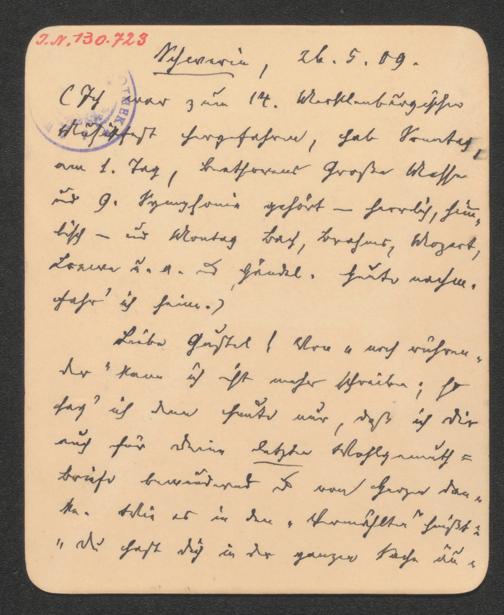 J.N. 130.723
Schwerin, 26. 5. 09.
(Ich war zum 14. Mecklenburgischen
Musikfest hergefahren, hab Sonntag,
am 1. Tag, Beethovens Große Messe
und 9. Symphonie gehört – herrlich, him-
lisch – und Montag Bach, Brahms, Mozart,
Loewe u. a. u. Händel. Heute nachm.
fahr' ich heim.)
Liebe Gustel! Von "noch rühren-
der" kann ich nicht mehr schreiben; so
sag' ich denn heute nur, daß ich Dir
auch für Deine letzten Wohlgemuth-
briefe bewundernd u. von Herzen dan-
ke. Wie es in den "Vermählten" heißt:
"Du hast Dich in der ganzen Sache